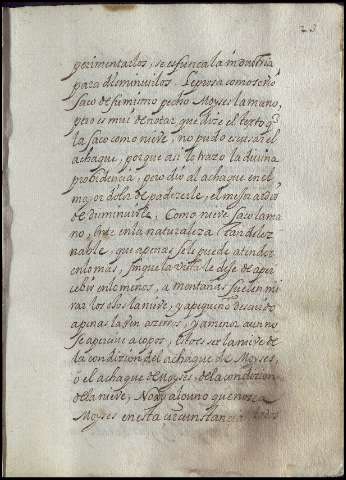 23
perimentarlos, se esfuerca la industria
para disminuirlos. Leprosa como se vio
saco de su mismo pecho Moyses la mano,
pero es mui de notar que dize el texto q̃
la saco como nieve, no pudo escusar el
achaque, porque asi lo trazo la divina
probidencia, pero dio al achaque en el
major dolor de padezerle, el mejor ardid
de diminuirle, Como nieve saco la ma
no, que en la naturaleza tan delez
nable, que apenas se le puede atender
en lo mas, sin que la vista le deje de aper
cebir en lo menos, a montañas suelen mi
rar los ojos la nieve, y a pequeño descuido
apenas la ven a cerros, y a menor aun no
se aperciue a copos,
la condizion del achaque de Moyses,
o el achaque de Moyses, de la condizion
de la nieve, No ay alguno que nosea
Moyses en esta circunstancia todos